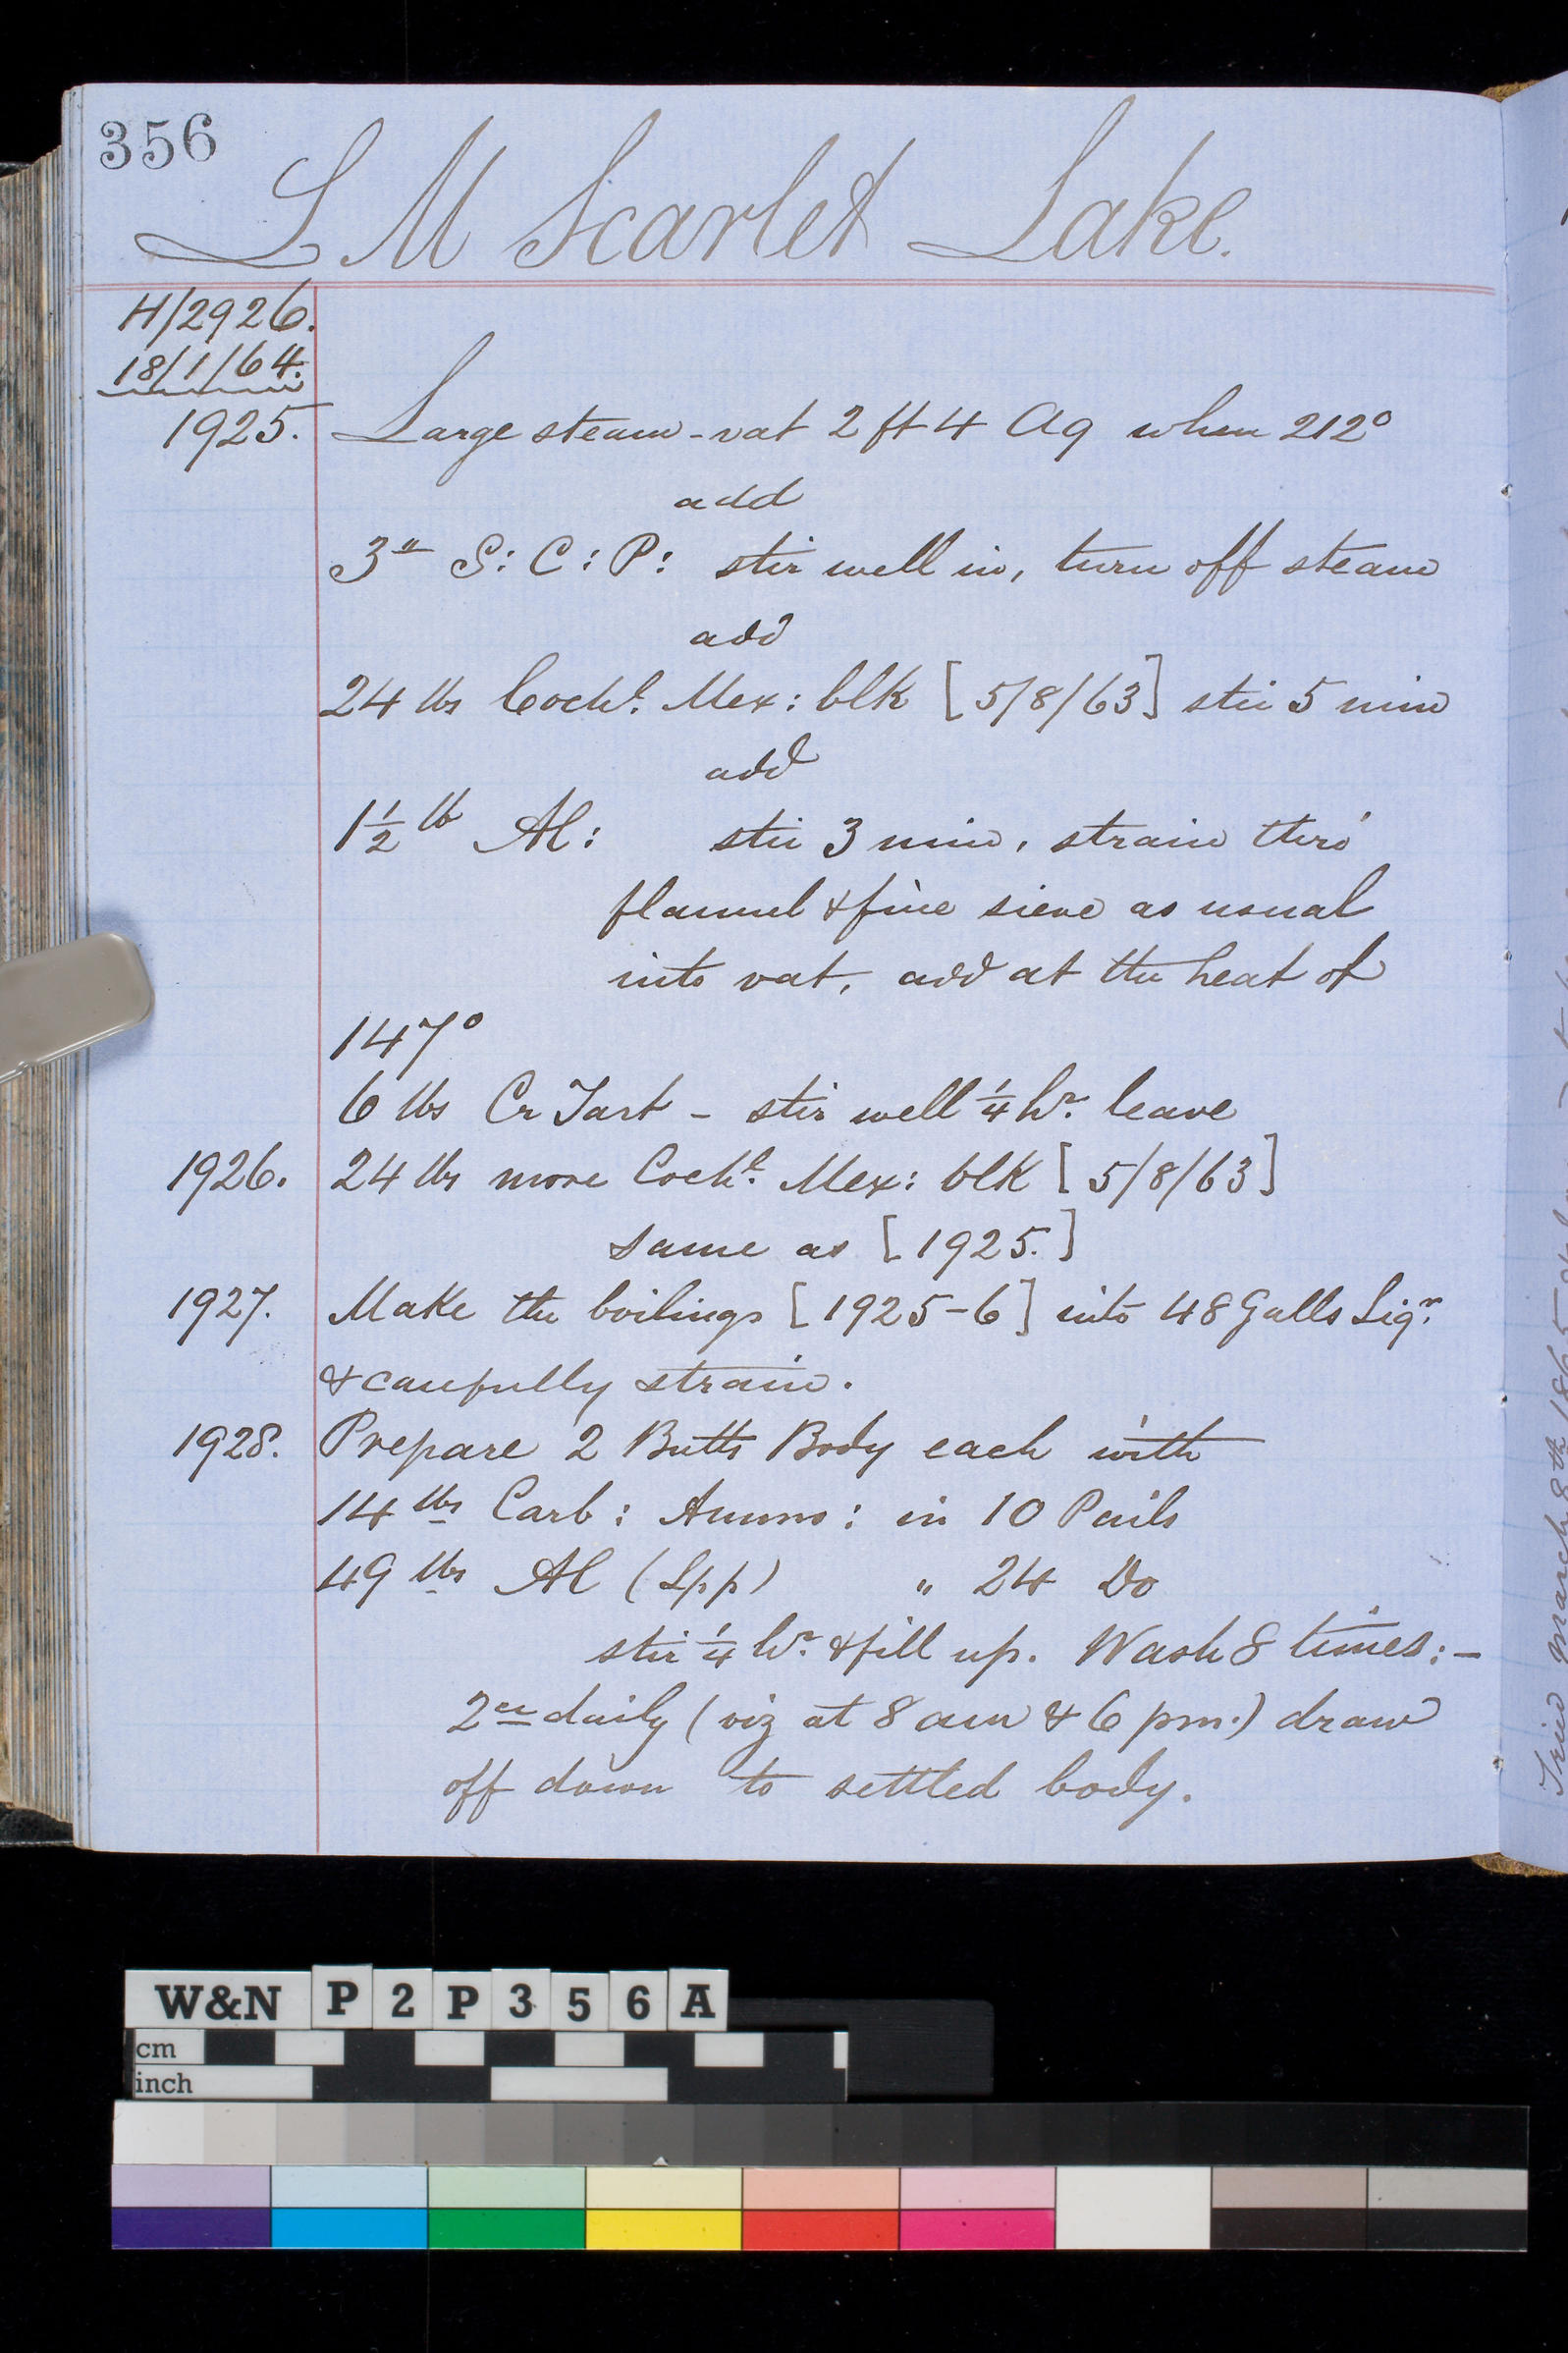 356
L M Scarlet Lake.
H/2926.
18/1/64.
1925. Large steam-vat 2 ft 4 Aq when 212°
add
3" S: C: P: stir well in, turn off steam
add
24 lbs Cochl. Mex: blk [5/8/63] stir 5 min
add
1½ lb Al: stir 3 min, strain thro'
flannel & fine sieve as usual
into vat, add at the heat of
147°
6 lbs Cr Tart - stir well ¼ hr. leave
1926. 24 lbs more Cochl. Mex: blk [5/8/63]
same as [1925.]
1927. Make the boilings [1925-6] into 48 Galls Liqr.
& carefully strain.
1928. Prepare 2 Butts Body each with
14 lbs Carb: Ammo: in 10 Pails
49 lbs Al (Lpp) " 24 Do
stir ¼ hr. & fill up. Wash 8 times:-
2ce daily (viz at 8 am & 6 pm.) draw
off down to settled body.
W&N P2P356A
cm
inch